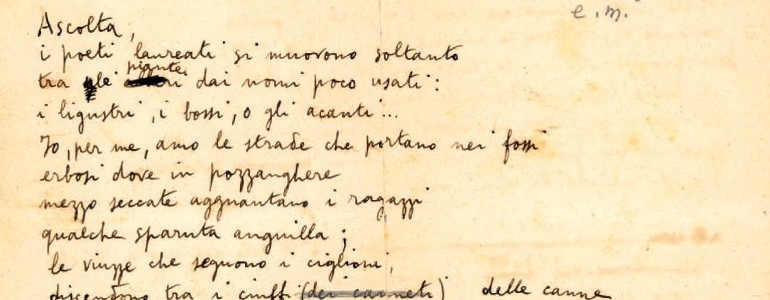 e.m.
Ascolta,
i poeti laureati si muovono soltanto
piante
tra le dai nomi poco usati:
i ligustri, i bossi, o gli acanti...
Io, per me, amo le strade che portano nei fossi
erbosi dove in pozzanghere
mezzo seccate agguantano i ragazzi
qualche sparuta anguilla;
le viuzze che seguono i ciglioni,
discendono tra i ciuffi (dei canneti) delle canne